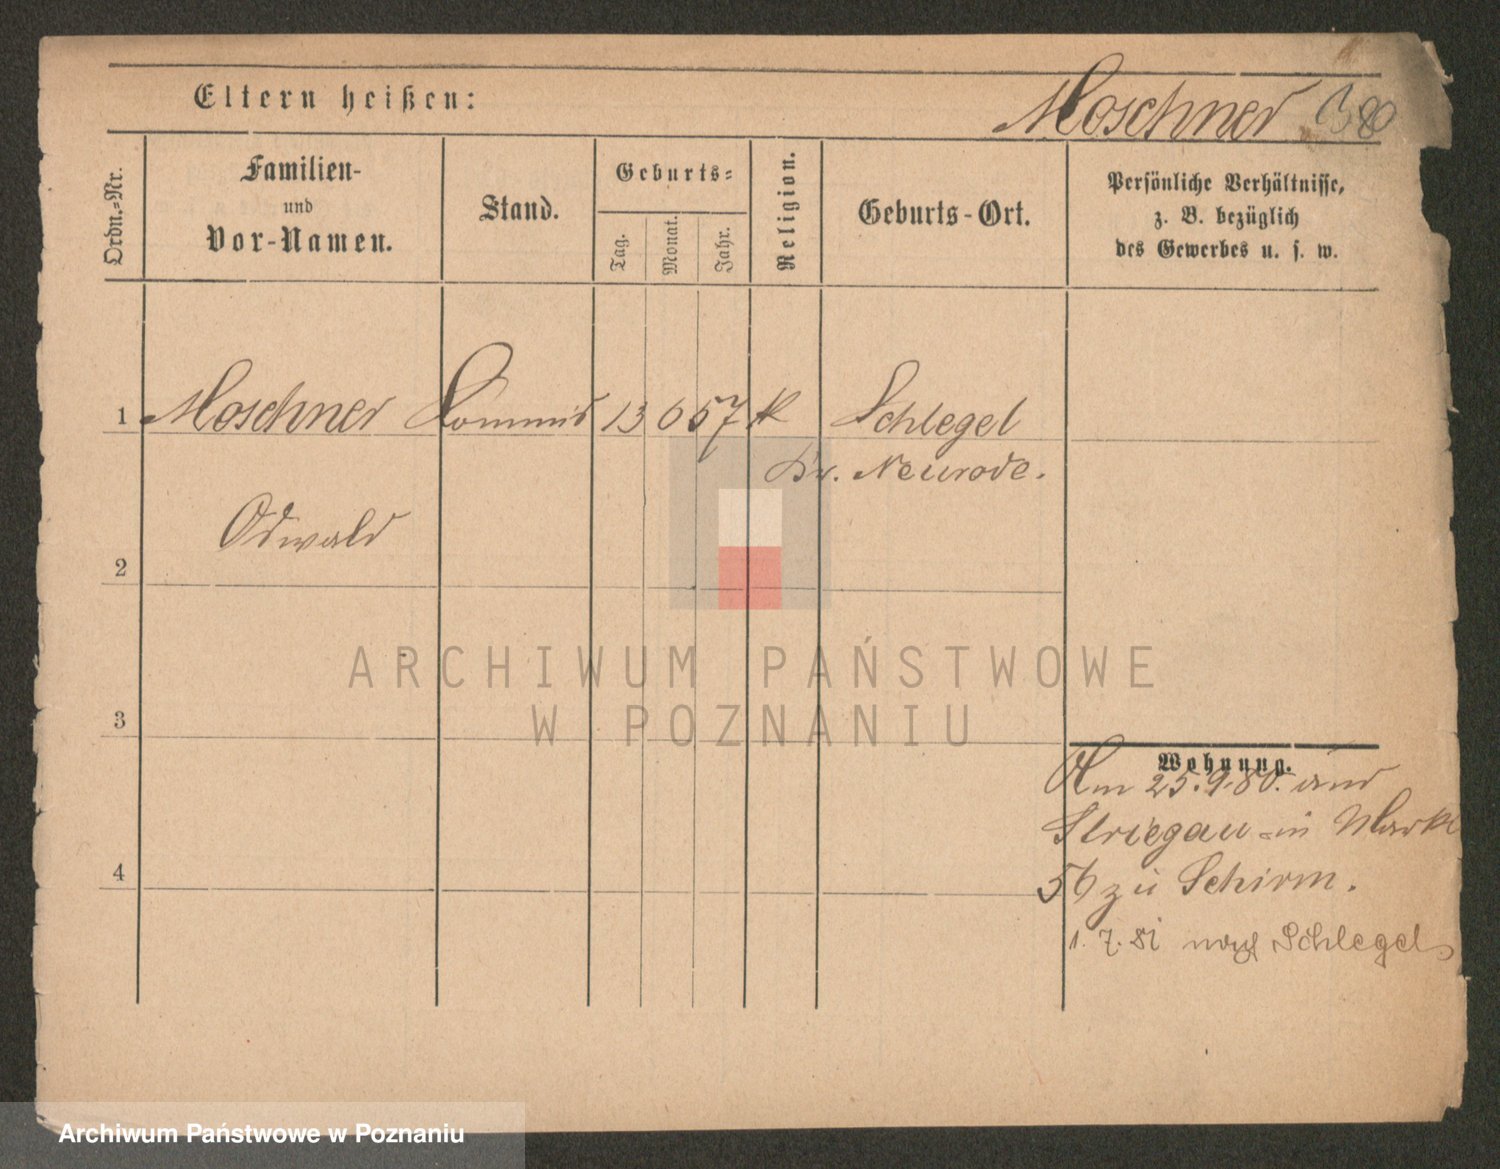 Eltern heißen:
Moschner
Ordn.-Nr.
Familien-
und
Vor-Namen.
Stand.
Geburts-
Tag.
Monat.
Jahr.
Religion.
Geburts-Ort.
Persönliche Verhältnisse,
z. B. bezüglich
des Gewerbes u. s. w.
1 Moschner Commis 13 6 57 k Schlegel
Kr. Neurode.
Oswald
2
3
4
ARCHIWUM PAŃSTWOWE
W POZNANIU
Wohnung.
Am 25.9.80. aus
Striegau in Markt
56 zu Schirm.
1. 7. 81 nach Schlegel
Archiwum Państwowe w Poznaniu